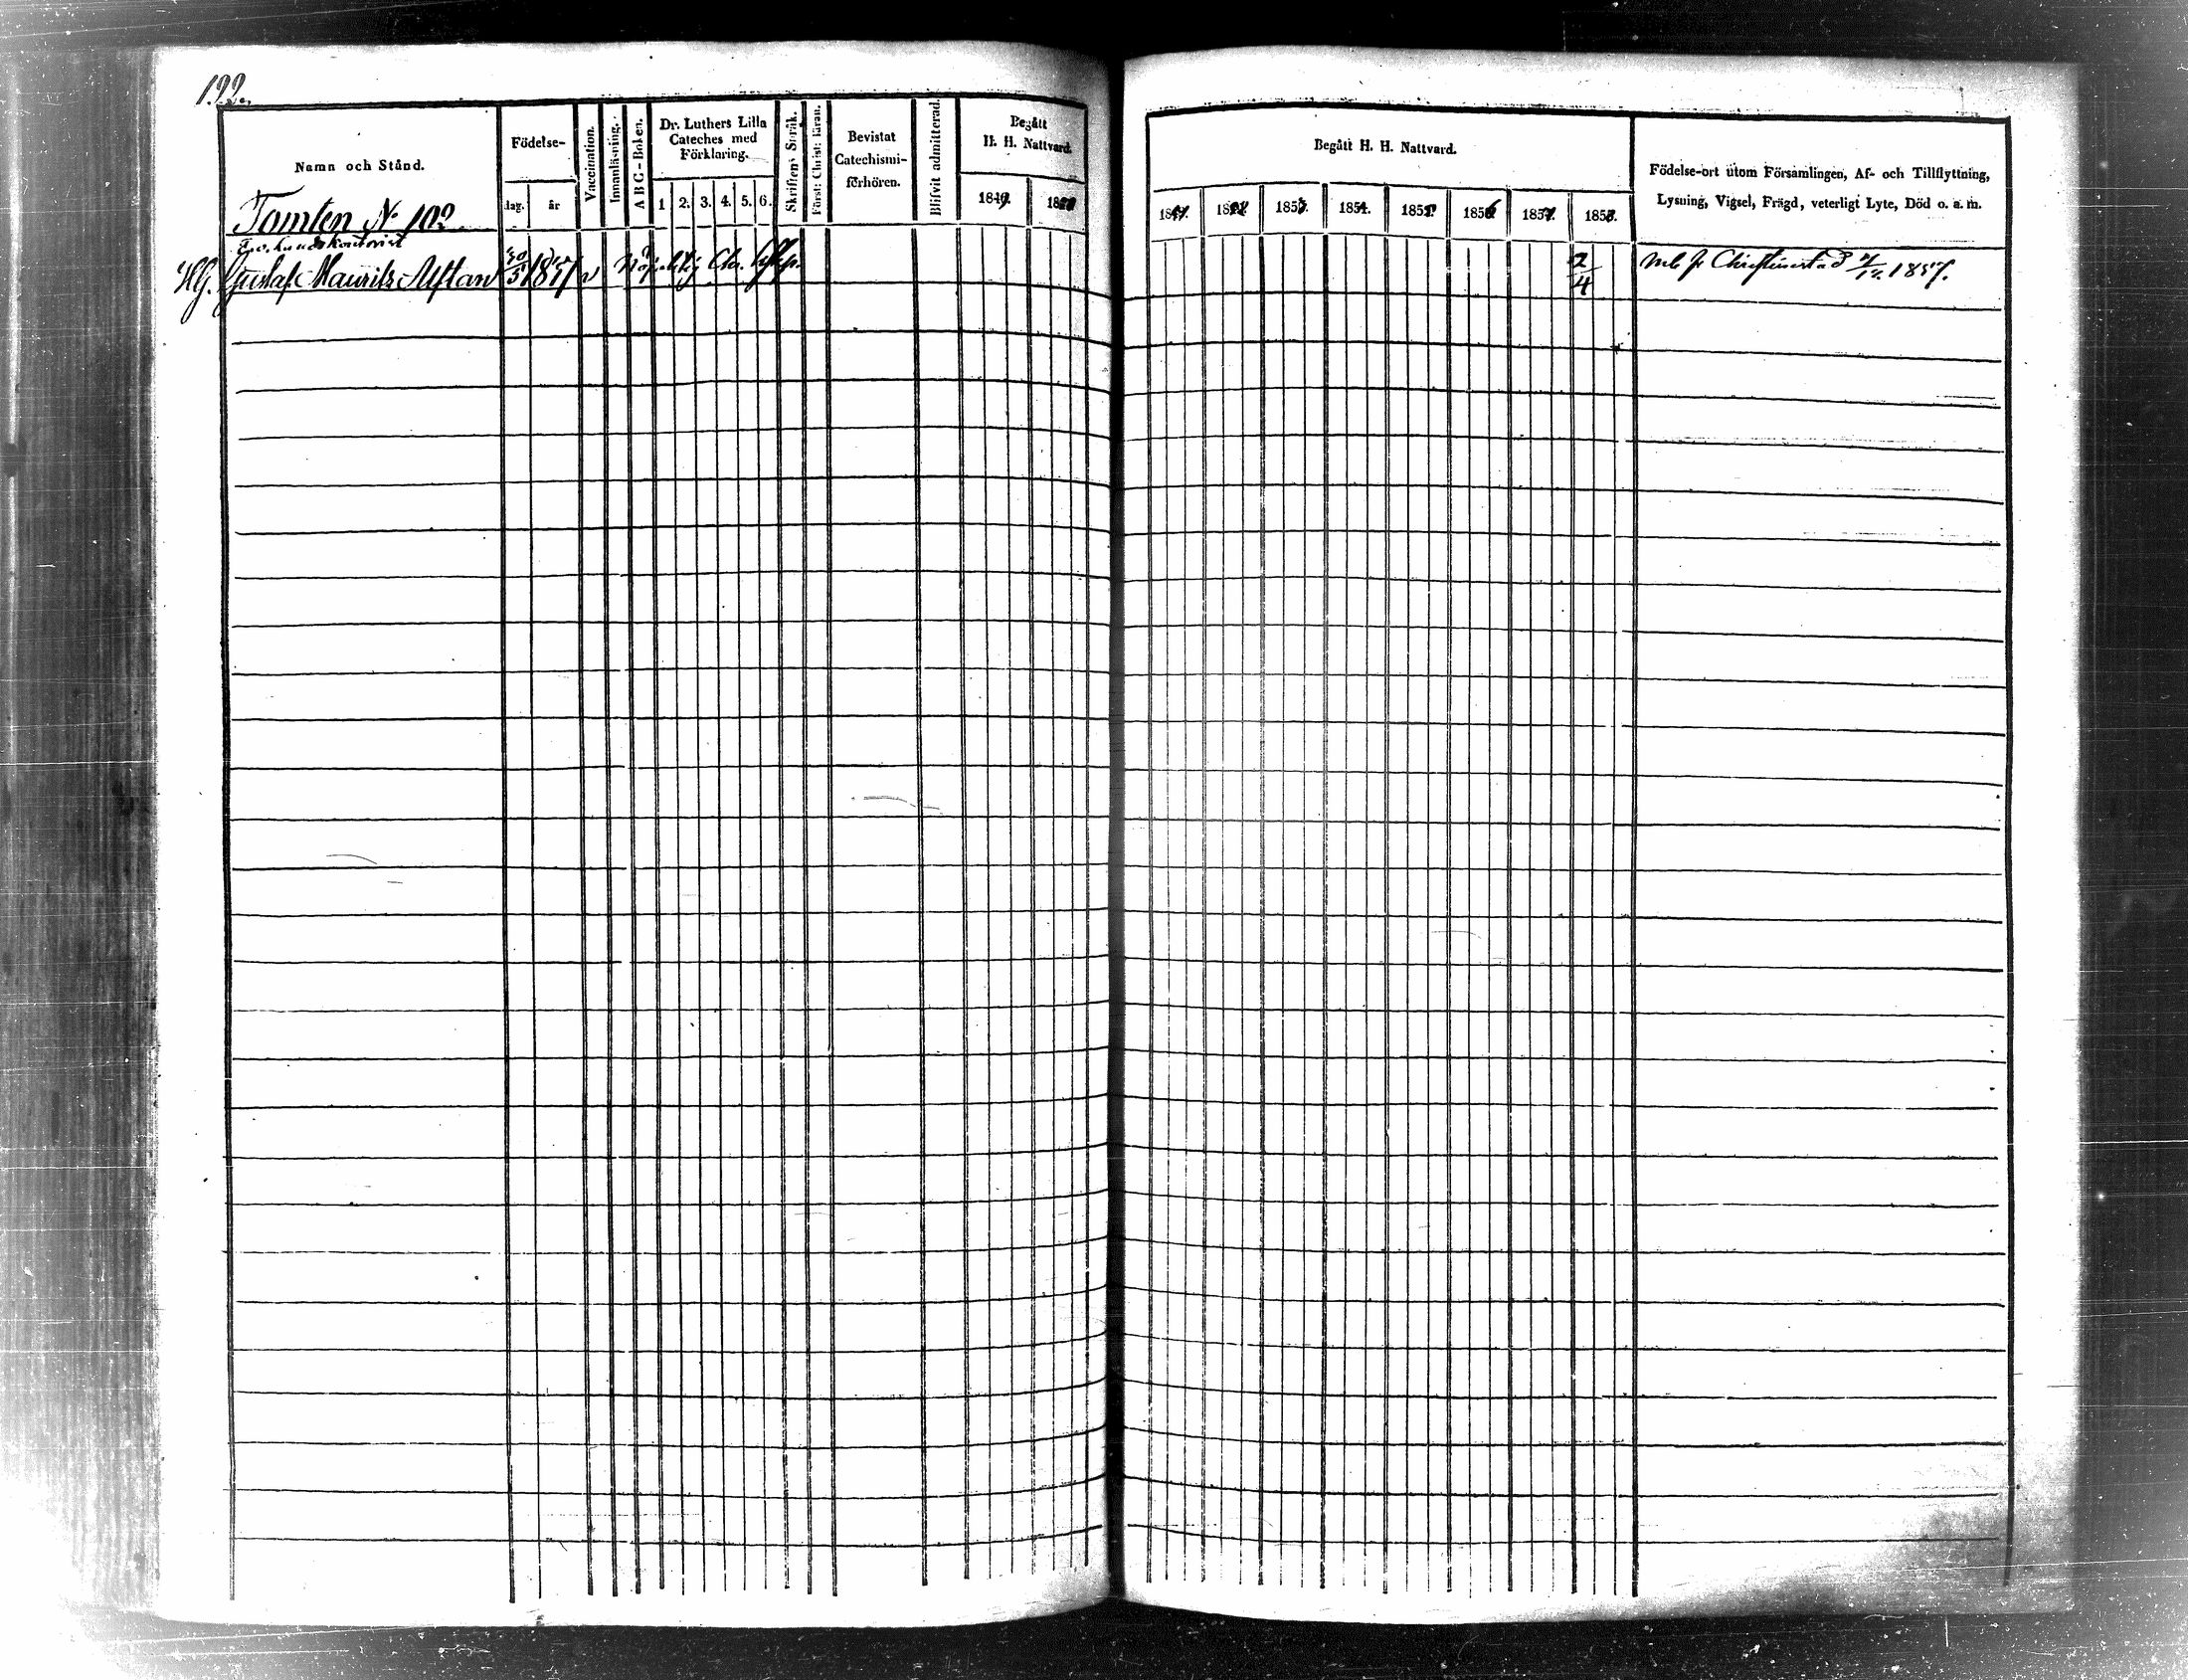 192.
Namn och Stånd.
Födelse-
dag. år
Vaccination.
Innanläsning.
ABC-Boken.
Dr. Luthers Lilla
Cateches med
Förklaring.
1 2. 3. 4. 5. 6.
Skriftens Språk.
Först: Christ: läran.
Bevistat
Catechismi-
förhören.
Blifvit admitterad.
Begått
H. H. Nattvard.
1849. 1850
Begått H. H. Nattvard.
1851. 1852. 1853. 1854. 1855. 1856 1857. 1858.
Födelse-ort utom Församlingen, Af- och Tillflyttning,
Lysning, Vigsel, Frägd, veterligt Lyte, Död o. a. m.
Tomten No 102.
Gustaf Mauritz Alftan
v
2/4
Christinestad 1857.